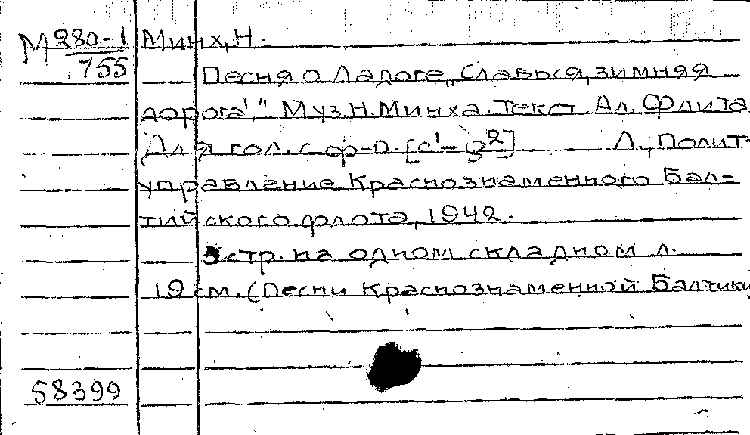 М 280-1 Минх, Н.
755
Песня о Ладоге „Славься, зимняя
дорога!" Муз. Н. Минха. Текст Ал. Флита
Для гол. с ф-п. [c¹-g²] Л., Полит-
управление Краснознаменного Бал-
тийского флота, 1942.
3 стр. на одном складном л.
19 см. (Песни Краснознаменной Балтики
58399